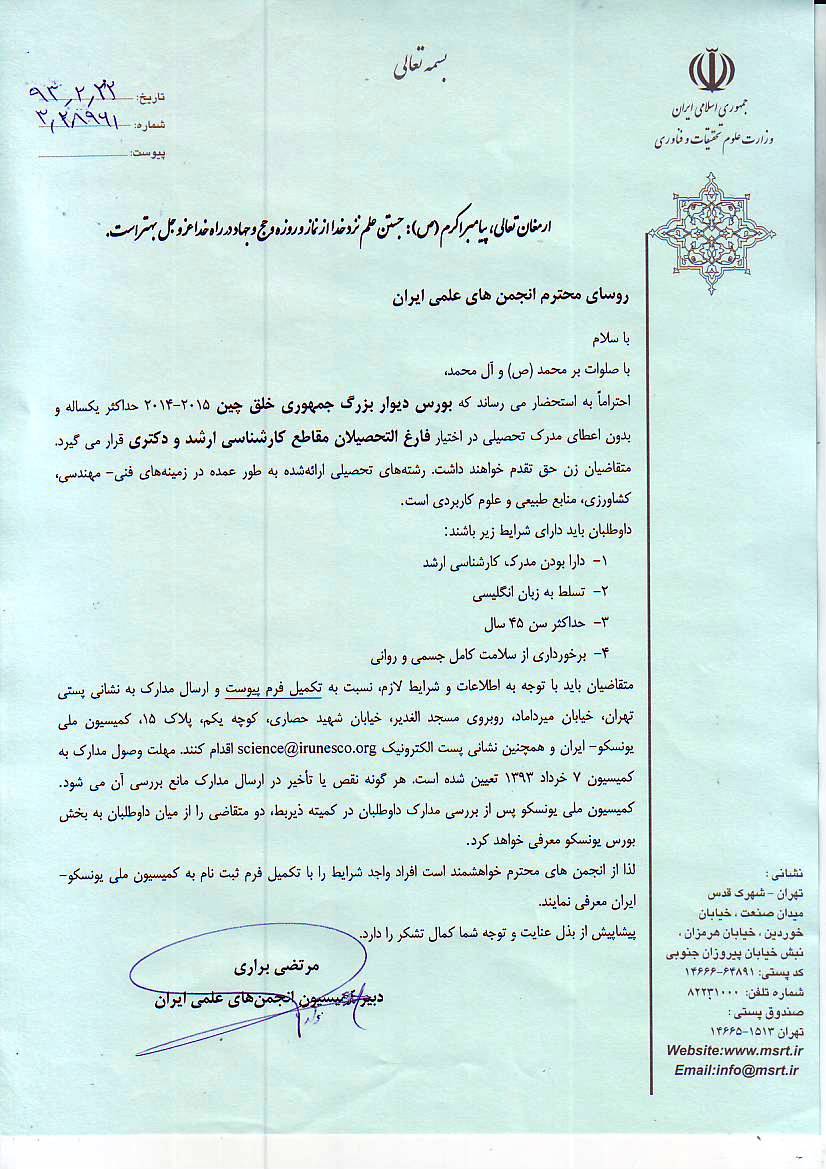 بسمه تعالی
جمهوری اسلامی ایران
وزارت علوم تحقیقات و فناوری
تاریخ: ۹۳٫۲٫۲۲
شماره: ۳٫۲۸۹۶۱
پیوست:
ارمغان تعالی، پیامبر اکرم (ص): جستن علم نزد خدا از نماز و روزه و حج و جهاد در راه خدا عز و جل بهتر است.
روسای محترم انجمن های علمی ایران
با سلام
با صلوات بر محمد (ص) و آل محمد،
احتراماً به استحضار می رساند که بورس دیوار بزرگ جمهوری خلق چین ۲۰۱۵-۲۰۱۴ حداکثر یکساله و
بدون اعطای مدرک تحصیلی در اختیار فارغ التحصیلان مقاطع کارشناسی ارشد و دکتری قرار می گیرد.
متقاضیان زن حق تقدم خواهند داشت. رشته‌های تحصیلی ارائه‌شده به طور عمده در زمینه‌های فنی- مهندسی،
کشاورزی، منابع طبیعی و علوم کاربردی است.
داوطلبان باید دارای شرایط زیر باشند:
۱- دارا بودن مدرک کارشناسی ارشد
۲- تسلط به زبان انگلیسی
۳- حداکثر سن ۴۵ سال
۴- برخورداری از سلامت کامل جسمی و روانی
متقاضیان باید با توجه به اطلاعات و شرایط لازم، نسبت به تکمیل فرم پیوست و ارسال مدارک به نشانی پستی
تهران، خیابان میرداماد، روبروی مسجد الغدیر، خیابان شهید حصاری، کوچه یکم، پلاک ۱۵، کمیسیون ملی
یونسکو- ایران و همچنین نشانی پست الکترونیک science@irunesco.org اقدام کنند. مهلت وصول مدارک به
کمیسیون ۷ خرداد ۱۳۹۳ تعیین شده است. هر گونه نقص یا تأخیر در ارسال مدارک مانع بررسی آن می شود.
کمیسیون ملی یونسکو پس از بررسی مدارک داوطلبان در کمیته ذیربط، دو متقاضی را از میان داوطلبان به بخش
بورس یونسکو معرفی خواهد کرد.
لذا از انجمن های محترم خواهشمند است افراد واجد شرایط را با تکمیل فرم ثبت نام به کمیسیون ملی یونسکو-
ایران معرفی نمایند.
پیشاپیش از بذل عنایت و توجه شما کمال تشکر را دارد.
مرتضی براری
دبیر کمیسیون انجمن‌های علمی ایران
نشانی :
تهران - شهرک قدس
میدان صنعت ، خیابان
خوردین ، خیابان هرمزان ،
نبش خیابان پیروزان جنوبی
کد پستی: ۶۴۸۹۱-۱۴۶۶۶
شماره تلفن: ۸۲۲۳۱۰۰۰
صندوق پستی :
تهران ۱۵۱۳-۱۴۶۶۵
Website:www.msrt.ir
Email:info@msrt.ir